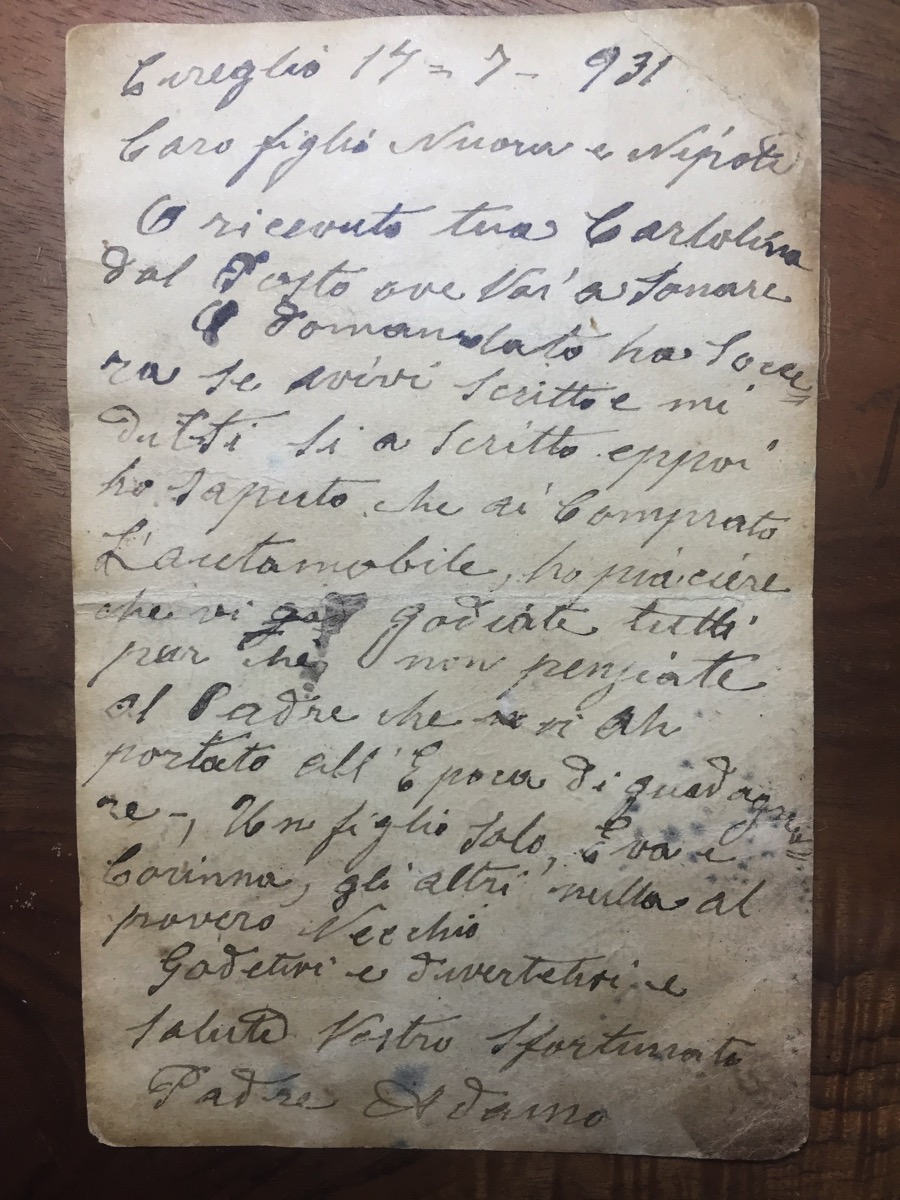 Cireglio 14 = 7 - 931
Caro figlio Nuora e Nipoti
O ricevuto tua Cartolina
dal Posto ove Vai a Sonare
O domandato ha Soce
ra se avivi scritto e mi
si a scritto eppoi
ho saputo che ai Comprato
L'autamobile, ho piaciere
che vi godiate tutti
pur che non pensiate
al Padre che vi ah
portato all'Epoca di guadagna
re -, Un figlio solo, Eva e
Corinna, gli altri nulla al
povero Vecchio
Godetivi e divertetivi e
saluti Vostro Sfortunato
Padre Adamo